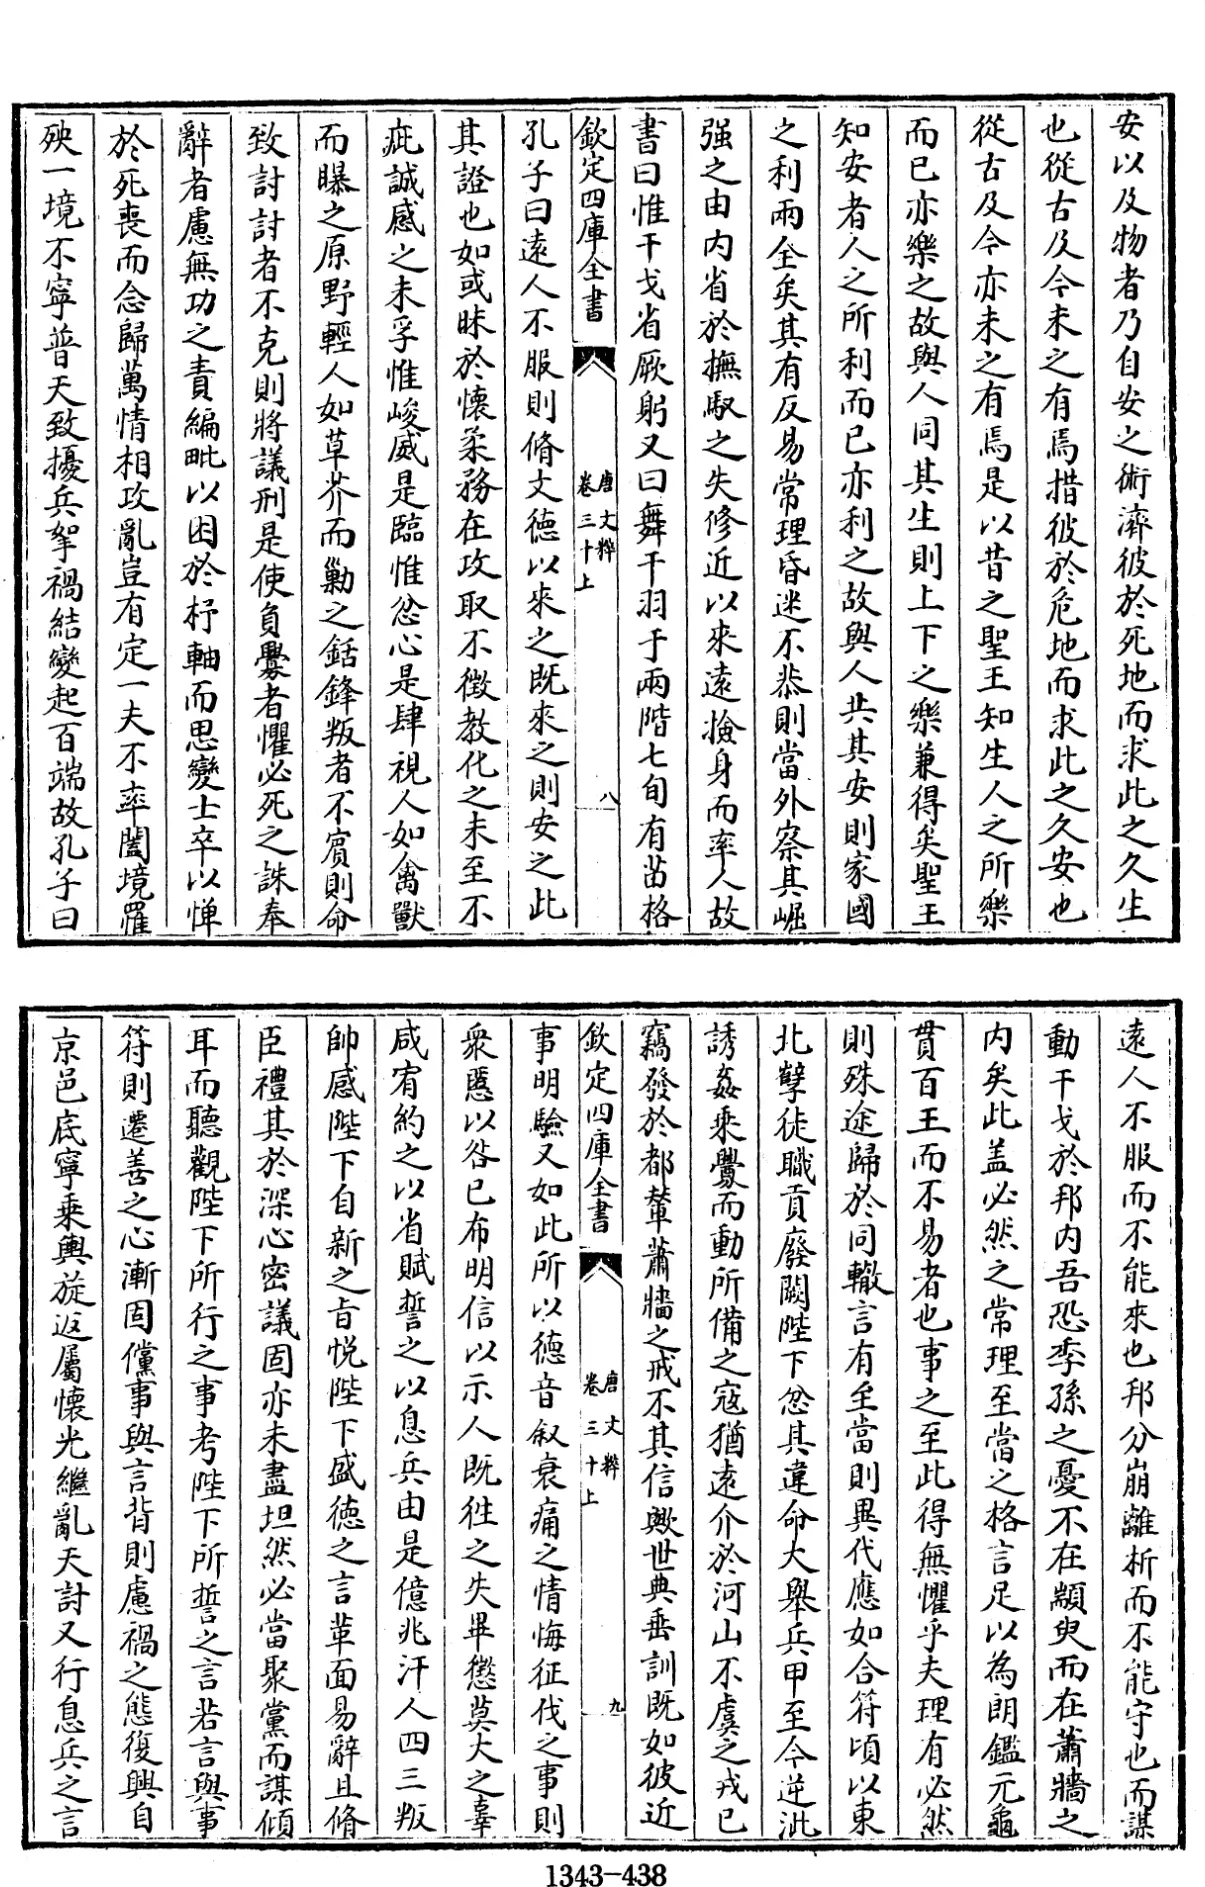 安以及物者乃自安之術濟彼於死地而求此之久生
也從古及今未之有焉措彼於危地而求此之久安也
從古及今亦未之有焉是以昔之聖王知生人之所樂
而已亦樂之故與人同其生則上下之樂兼得矣聖王
知安者人之所利而已亦利之故與人共其安則家國
之利兩全矣其有反易常理昏迷不恭則當外察其崛
强之由内省於撫馭之失修近以來遠撿身而率人故
書曰惟干戈省厥躬又曰舞干羽于兩階七旬有苗格
欽定四庫全書
唐文粹
卷三十上
八
孔子曰遠人不服則脩文德以來之既來之則安之此
其證也如或昧於懷柔務在攻取不徴教化之未至不
疵誠感之未孚惟峻威是臨惟忿心是肆視人如禽獸
而曝之原野輕人如草芥而勦之銛鋒叛者不賓則命
致討討者不克則將議刑是使負釁者懼必死之誅奉
辭者慮無功之責編甿以困於杼軸而思變士卒以憚
於死喪而念歸萬情相攻亂豈有定一夫不率闔境罹
殃一境不寧普天致擾兵挐禍結變起百端故孔子曰
遠人不服而不能來也邦分崩離析而不能守也而謀
動干戈於邦内吾恐季孫之憂不在顓臾而在蕭牆之
内矣此盖必然之常理至當之格言足以為朗鑑元龜
貫百王而不易者也事之至此得無懼乎夫理有必然
則殊途歸於同轍言有至當則異代應如合符頃以東
北孽徒職貢廢闕陛下忿其違命大舉兵甲至今逆沘
誘姦乘釁而動所備之寇猶遠介於河山不虞之戎已
竊發於都輦蕭牆之戒不其信歟世典垂訓既如彼近
欽定四庫全書
唐文粹
卷三十上
九
事明驗又如此所以德音叙哀痛之情悔征伐之事則
衆慝以咎已布明信以示人既徃之失畢懲莫大之辜
咸宥約之以省賦誓之以息兵由是億兆汗人四三叛
帥感陛下自新之旨悦陛下盛德之言革面易辭且脩
臣禮其於深心密議固亦未盡坦然必當聚黨而謀傾
耳而聽觀陛下所行之事考陛下所誓之言若言與事
符則遷善之心漸固儻事與言背則慮禍之態復興自
京邑底寧乘輿旋返屬懷光繼亂天討又行息兵之言
1343-438